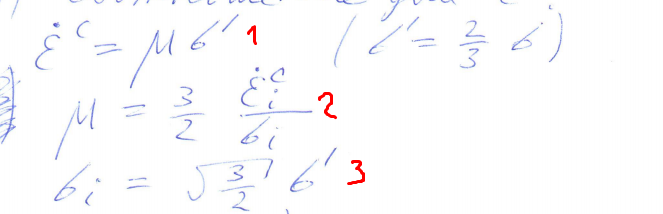 ε̇ᶜ = μ σ' 1 ( σ' = 2/3 σ )
μ = 3/2 ε̇ᵢᶜ/σᵢ 2
σᵢ = √(3/2) σ' 3